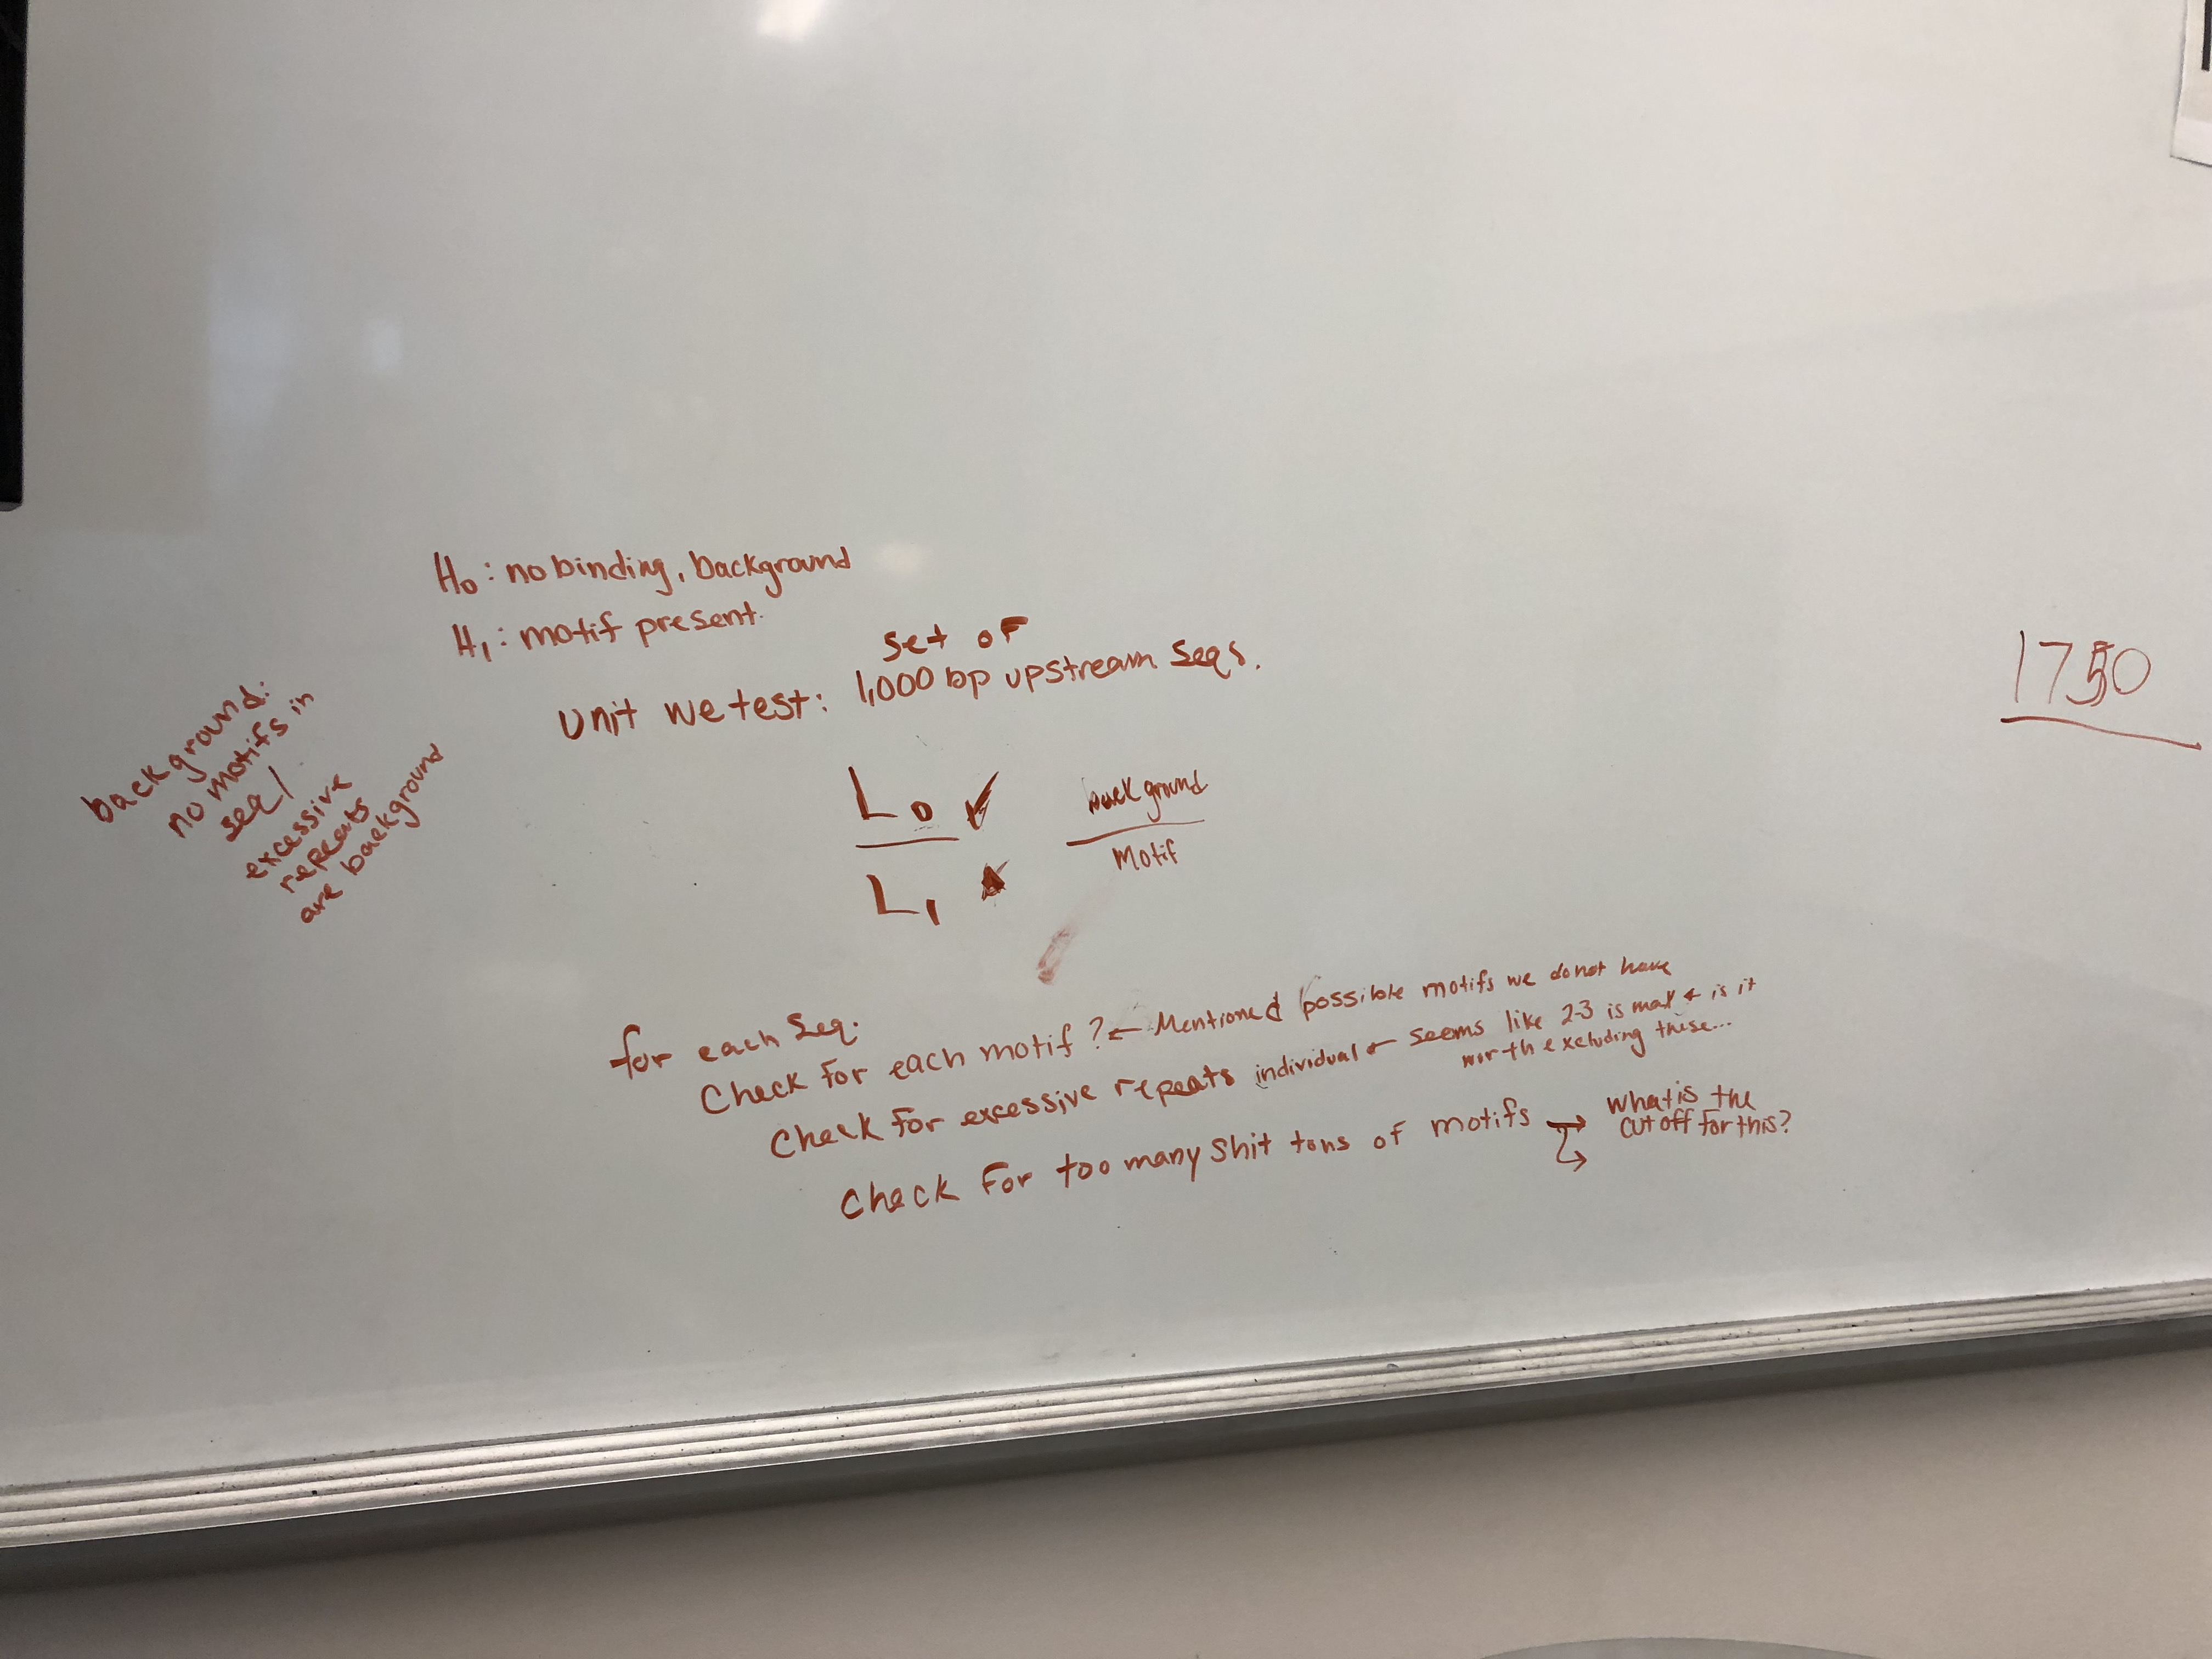 H₀: no binding, background
H₁: motif present.
set of
Unit we test: 1,000 bp upstream seqs.
1750
background:
no motifs in
seq/
excessive
repeats
are background
L₀ ✓
L₁
background
motif
for each seq:
Check for each motif? ← Mentioned possible motifs we do not have
Check for excessive repeats individual ← seems like 2-3 is max ← is it
worth excluding these...
Check For too many shit tons of motifs → what is the
cut off for this?